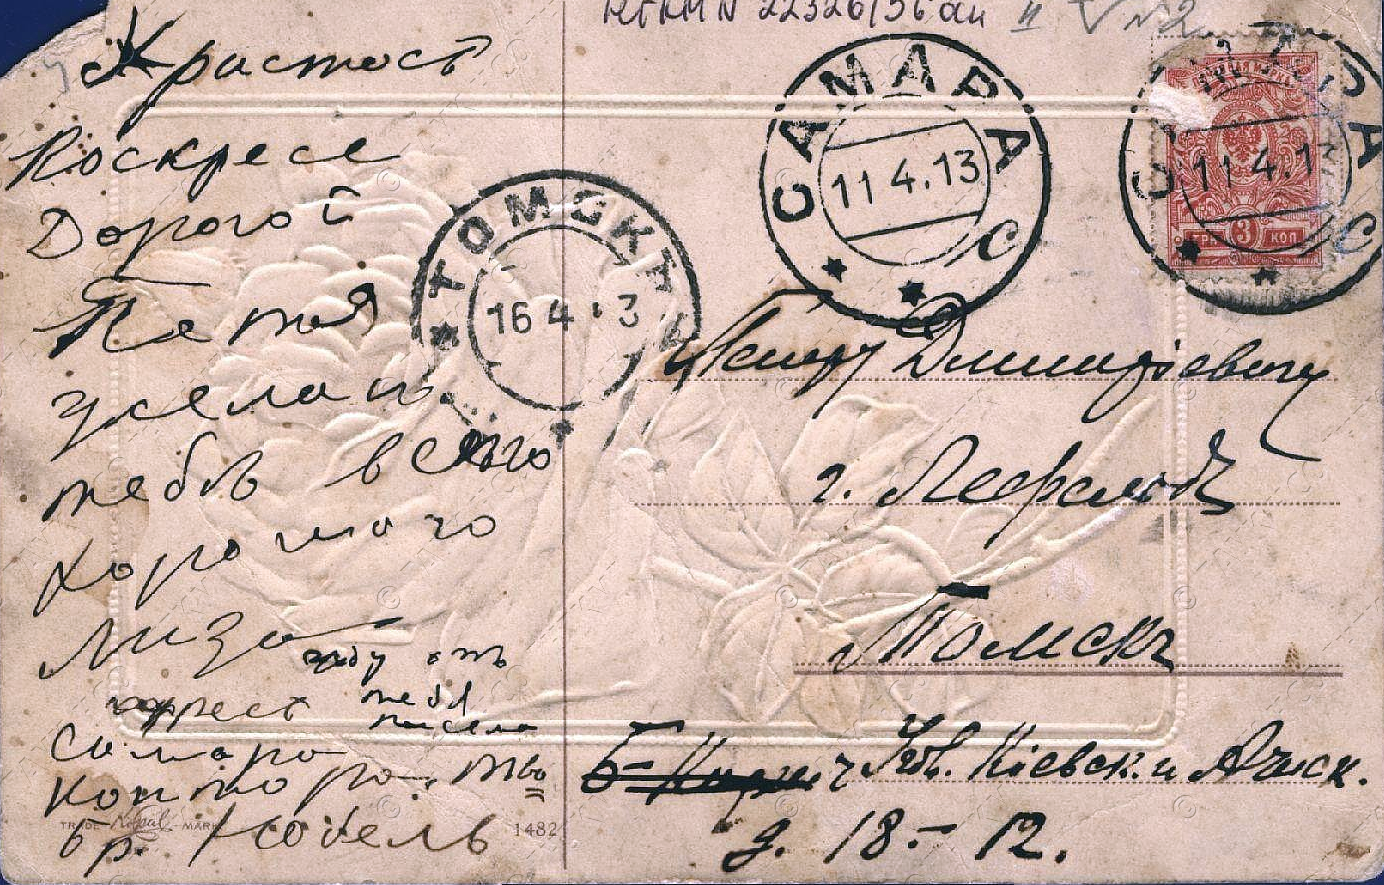 Христосъ
Воскресе
Дорогой
Петя
желаю
тебѣ всего
хорошаго
Лиза
жду отъ
тебя
писема
адресъ
Самара
контора. Т-во
бр. Нобель
TRADE MARK
1482
НГКМ N 22326/56
II V N2
САМАРА
11 4.13
с
САМАРА
11 4.13
с
ТРИ 3 КОП
ТОМСКЪ
16 4 13
Петру Дмитріевичу
г.
Томскъ
Б-
уг. Кіевск. и Ачинск.
д. 18.- 12.